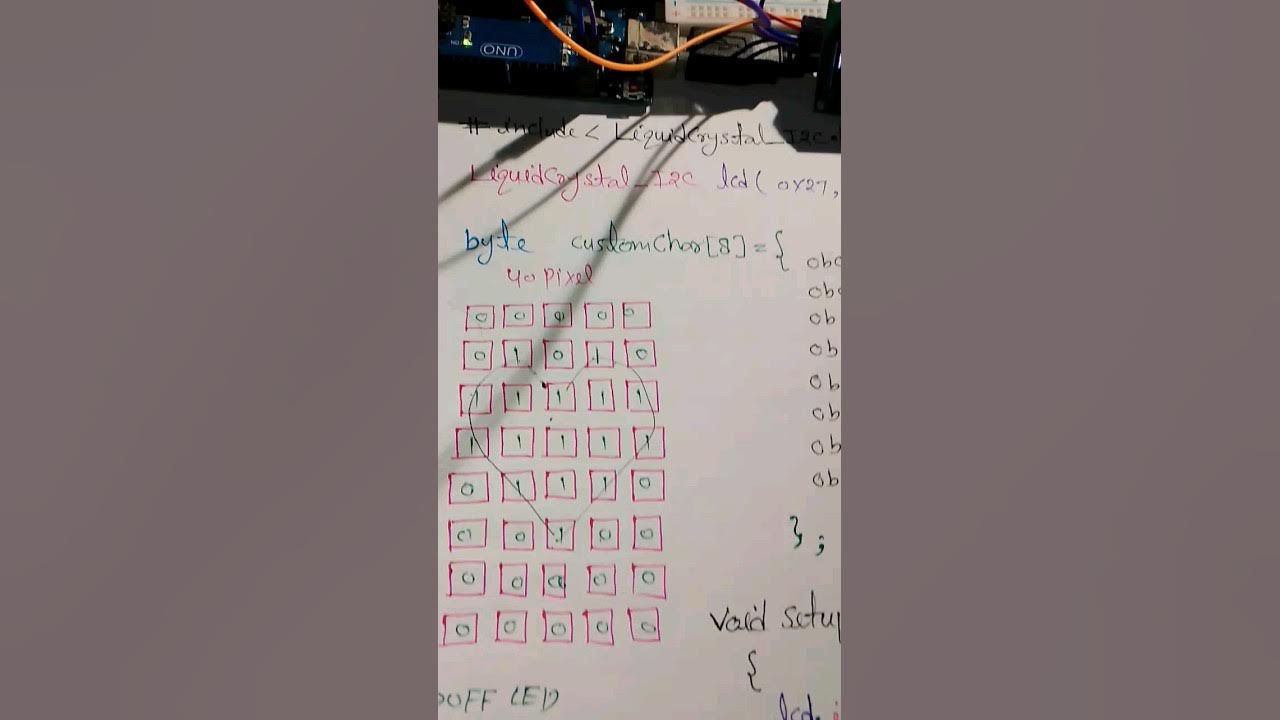 UNO
# include < LiquidCrystal_I2C.
LiquidCrystal_I2C lcd( 0x27,
byte customChar[8] = {
40 Pixel
0 0 0 0 0
0 1 0 1 0
1 1 1 1 1
1 1 1 1 1
0 1 1 1 0
0 0 1 0 0
0 0 0 0 0
0 0 0 0 0
0b0
0b0
0b
0b
0b
0b
0b
0b
};
Void Setup
{
lcd.i
OFF LED